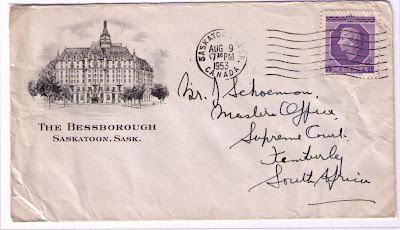 SASKATOON, SASK.
AUG 9
PM
1953
CANADA
Mr. J Schoeman,
Masters Office,
Supreme Court.
Kimberley
South Africa
THE BESSBOROUGH
SASKATOON, SASK.